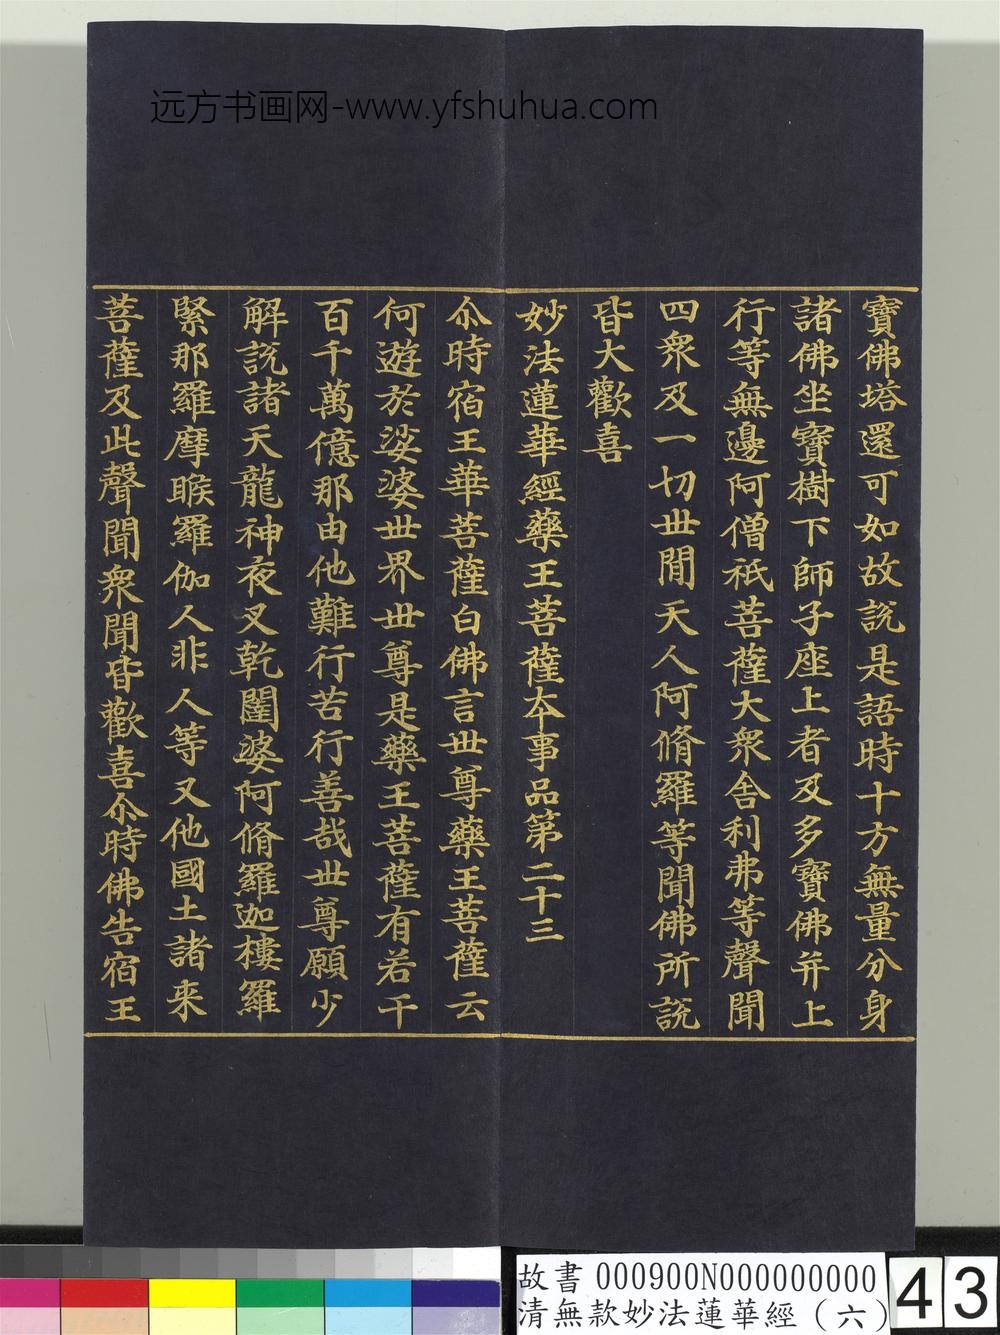 远方书画网-www.yfshuhua.com
寶佛塔還可如故說是語時十方無量分身
諸佛坐寶樹下師子座上者及多寶佛并上
行等無邊阿僧祇菩薩大衆舍利弗等聲聞
四衆及一切世間天人阿脩羅等聞佛所說
皆大歡喜
妙法蓮華經藥王菩薩本事品第二十三
尒時宿王華菩薩白佛言世尊藥王菩薩云
何遊於娑婆世界世尊是藥王菩薩有若干
百千萬億那由他難行苦行善哉世尊願少
解說諸天龍神夜叉乾闥婆阿脩羅迦樓羅
緊那羅摩睺羅伽人非人等又他國土諸来
菩薩及此聲聞衆聞皆歡喜尒時佛告宿王
故書 000900N000000000
清無款妙法蓮華經（六）
43